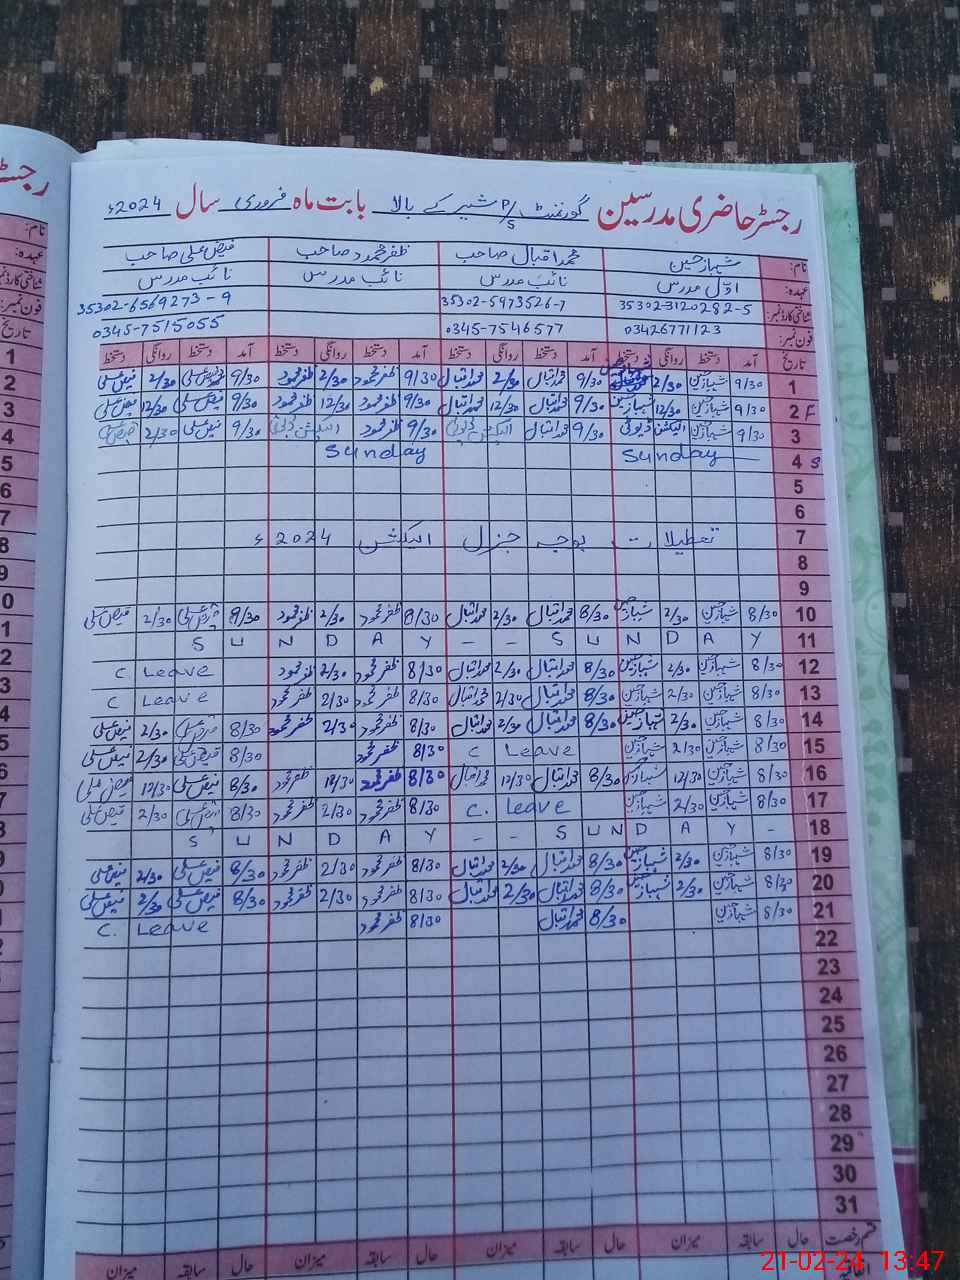 رجسٹر حاضری مدرسین گورنمنٹ P/S شیر کے بالا بابت ماہ فروری سال 2024ء
نام: شہباز حسین محمد اقبال صاحب ظفر محمود صاحب فیض علی صاحب
عہدہ: اوّل مدرس نائب مدرس نائب مدرس نائب مدرس
شناختی کارڈ نمبر: 35302-3120282-5 35302-5973526-7 35302-6569273-9
فون نمبر: 03426771123 0345-7546577 0345-7515055
تاریخ آمد دستخط روانگی دستخط آمد دستخط روانگی دستخط آمد دستخط روانگی دستخط آمد دستخط روانگی دستخط
1 9/30 شہباز حسین 2/30 9/30 محمد اقبال 2/30 محمد اقبال 9/30 ظفر محمود 2/30 ظفر محمود 9/30 2/30 فیض علی
2 F 9/30 شہباز حسین 12/30 شہباز حسین 9/30 محمد اقبال 12/30 محمد اقبال 9/30 ظفر محمود 12/30 ظفر محمود 9/30 فیض علی 12/30 فیض علی
3 9/30 شہباز حسین الیکشن ڈیوٹی 9/30 محمد اقبال الیکشن ڈیوٹی 9/30 ظفر محمود الیکشن ڈیوٹی 9/30 فیض علی 2/30 فیض علی
4 S Sunday Sunday
5
6
7 تعطیلات بوجہ جنرل الیکشن 2024ء
8
9
10 8/30 شہباز حسین 2/30 شہباز حسین 8/30 محمد اقبال 2/30 محمد اقبال 8/30 ظفر محمود 2/30 ظفر محمود 8/30 فیض علی 2/30 فیض علی
11 S U N D A Y - - S U N D A Y
12 8/30 شہباز حسین 2/30 شہباز حسین 8/30 محمد اقبال 2/30 محمد اقبال 8/30 ظفر محمود 2/30 ظفر محمود C Leave
13 8/30 شہباز حسین 2/30 شہباز حسین 8/30 محمد اقبال 2/30 محمد اقبال 8/30 ظفر محمود 2/30 ظفر محمود C Leave
14 8/30 شہباز حسین 2/30 شہباز حسین 8/30 محمد اقبال 2/30 محمد اقبال 8/30 ظفر محمود 2/30 ظفر محمود 8/30 فیض علی 2/30 فیض علی
15 8/30 شہباز حسین 2/30 شہباز حسین C Leave 8/30 ظفر محمود 8/30 فیض علی 2/30 فیض علی
16 8/30 شہباز حسین 12/30 شہباز حسین 8/30 محمد اقبال 12/30 محمد اقبال 8/30 ظفر محمود 12/30 ظفر محمود 8/30 فیض علی 12/30 فیض علی
17 8/30 شہباز حسین 2/30 شہباز حسین C. Leave 8/30 ظفر محمود 2/30 ظفر محمود 8/30 فیض علی 2/30 فیض علی
18 S U N D A Y - - S U N D A Y -
19 8/30 شہباز حسین 2/30 شہباز حسین 8/30 محمد اقبال 2/30 محمد اقبال 8/30 ظفر محمود 2/30 ظفر محمود 8/30 فیض علی 2/30 فیض علی
20 8/30 شہباز حسین 2/30 شہباز حسین 8/30 محمد اقبال 2/30 محمد اقبال 8/30 ظفر محمود 2/30 ظفر محمود 8/30 فیض علی 2/30 فیض علی
21 8/30 شہباز حسین 8/30 محمد اقبال 8/30 ظفر محمود C. Leave
22
23
24
25
26
27
28
29
30
31
قسم رخصت حال سابقہ میزان حال سابقہ میزان حال سابقہ میزان حال سابقہ میزان
21-02-24 13:47